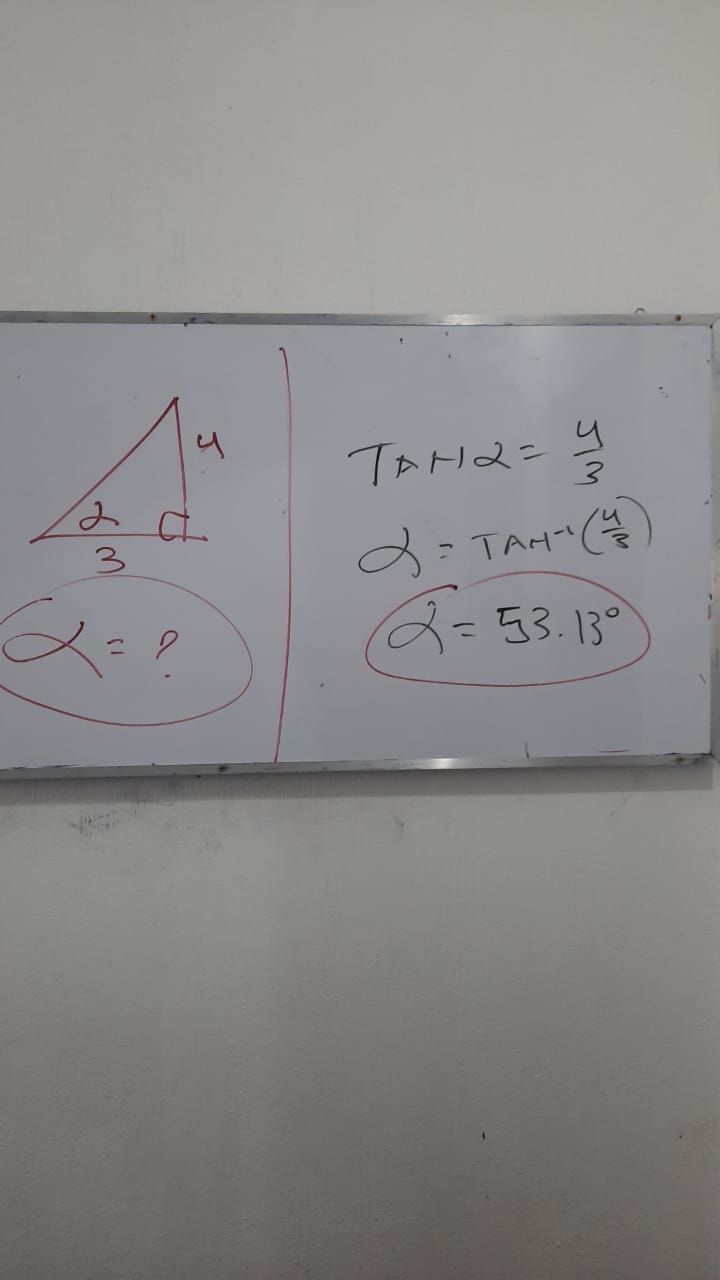 4
α
3
α = ?
TAN α = 4/3
α = TAN⁻¹(4/3)
α = 53.13°